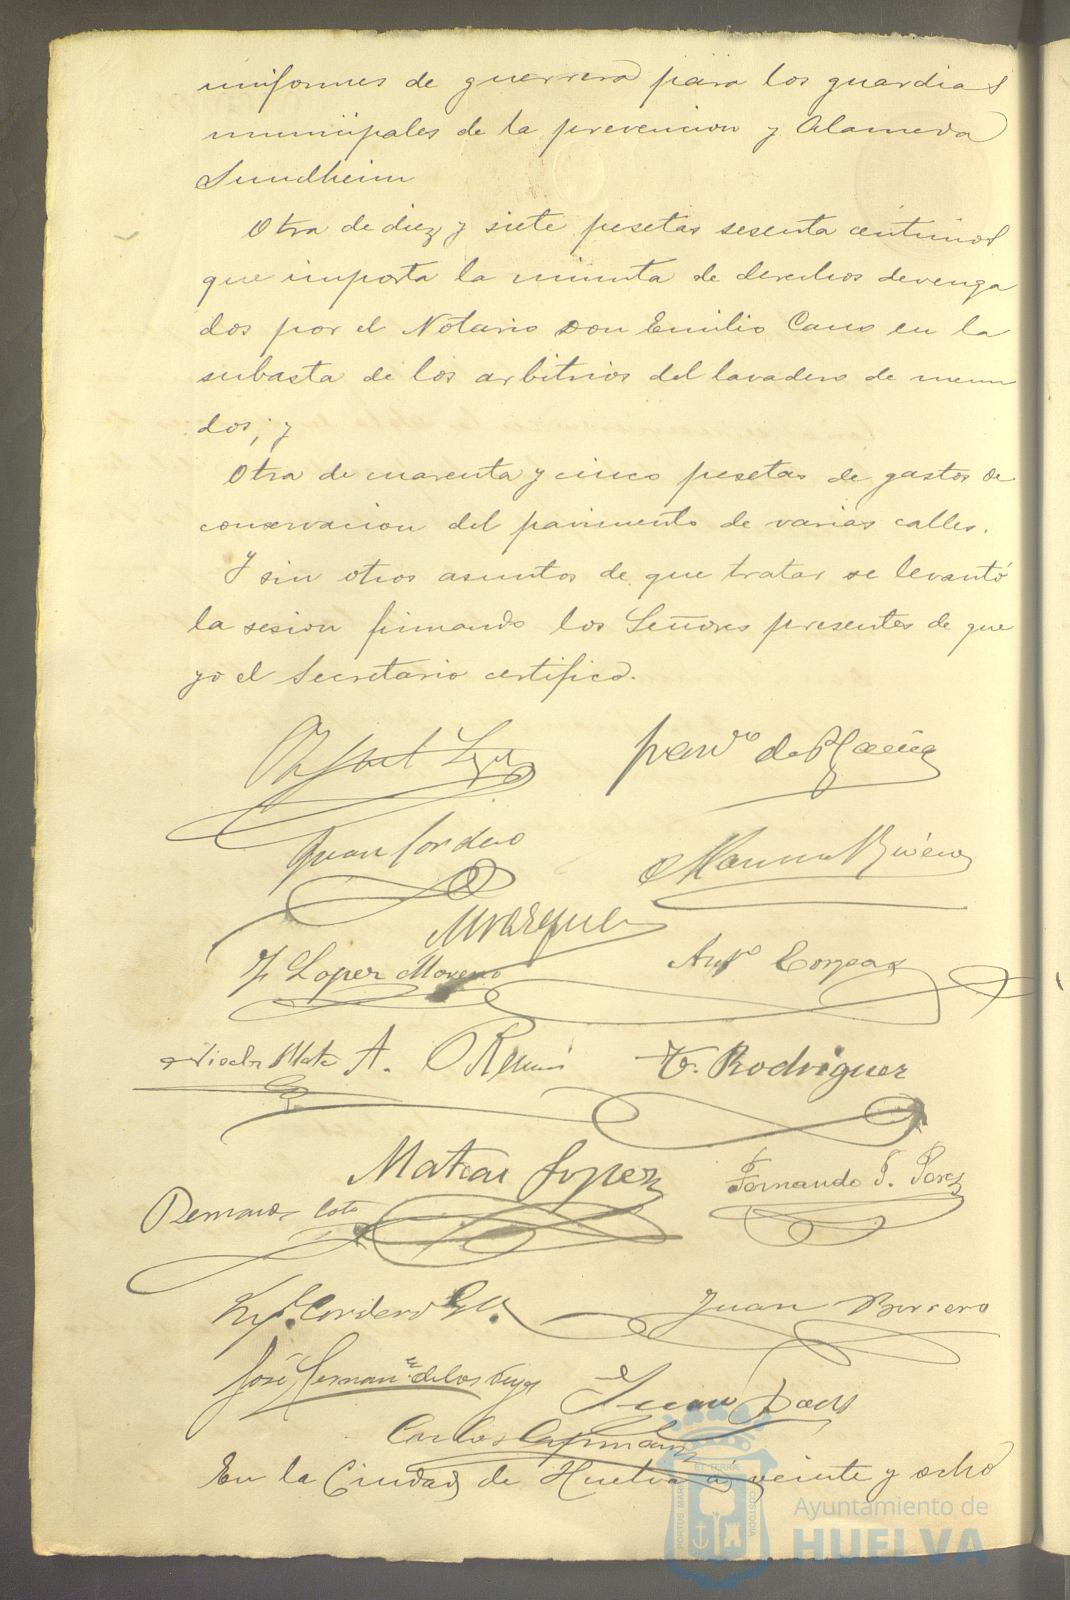 uniformes de guerrera para los guardias
municipales de la prevencion y Alameda
Sundheim
Otra de diez y siete pesetas sesenta centimos
que importa la minuta de derechos devenga
dos por el Notario Don Emilio Cano en la
subasta de los arbitrios del lavadero de menu
dos; y
Otra de cuarenta y cinco pesetas de gastos de
conservacion del pavimento de varias calles.
Y sin otros asuntos de que tratar se levantó
la sesion firmando los Señores presentes de que
yo el Secretario certifico.
Juan Cordero
Marquez
J. Lopez Moreno
Antº
A.
T. Rodriguez
Matias Lopez
Fernando
Cordero
Juan Borrero
José Hernanz de los
Juan
Carlos
En la Ciudad de Huelva á veinte y ocho
PORTUS MARIS ET TERRÆ CUSTODIA
Ayuntamiento de
HUELVA